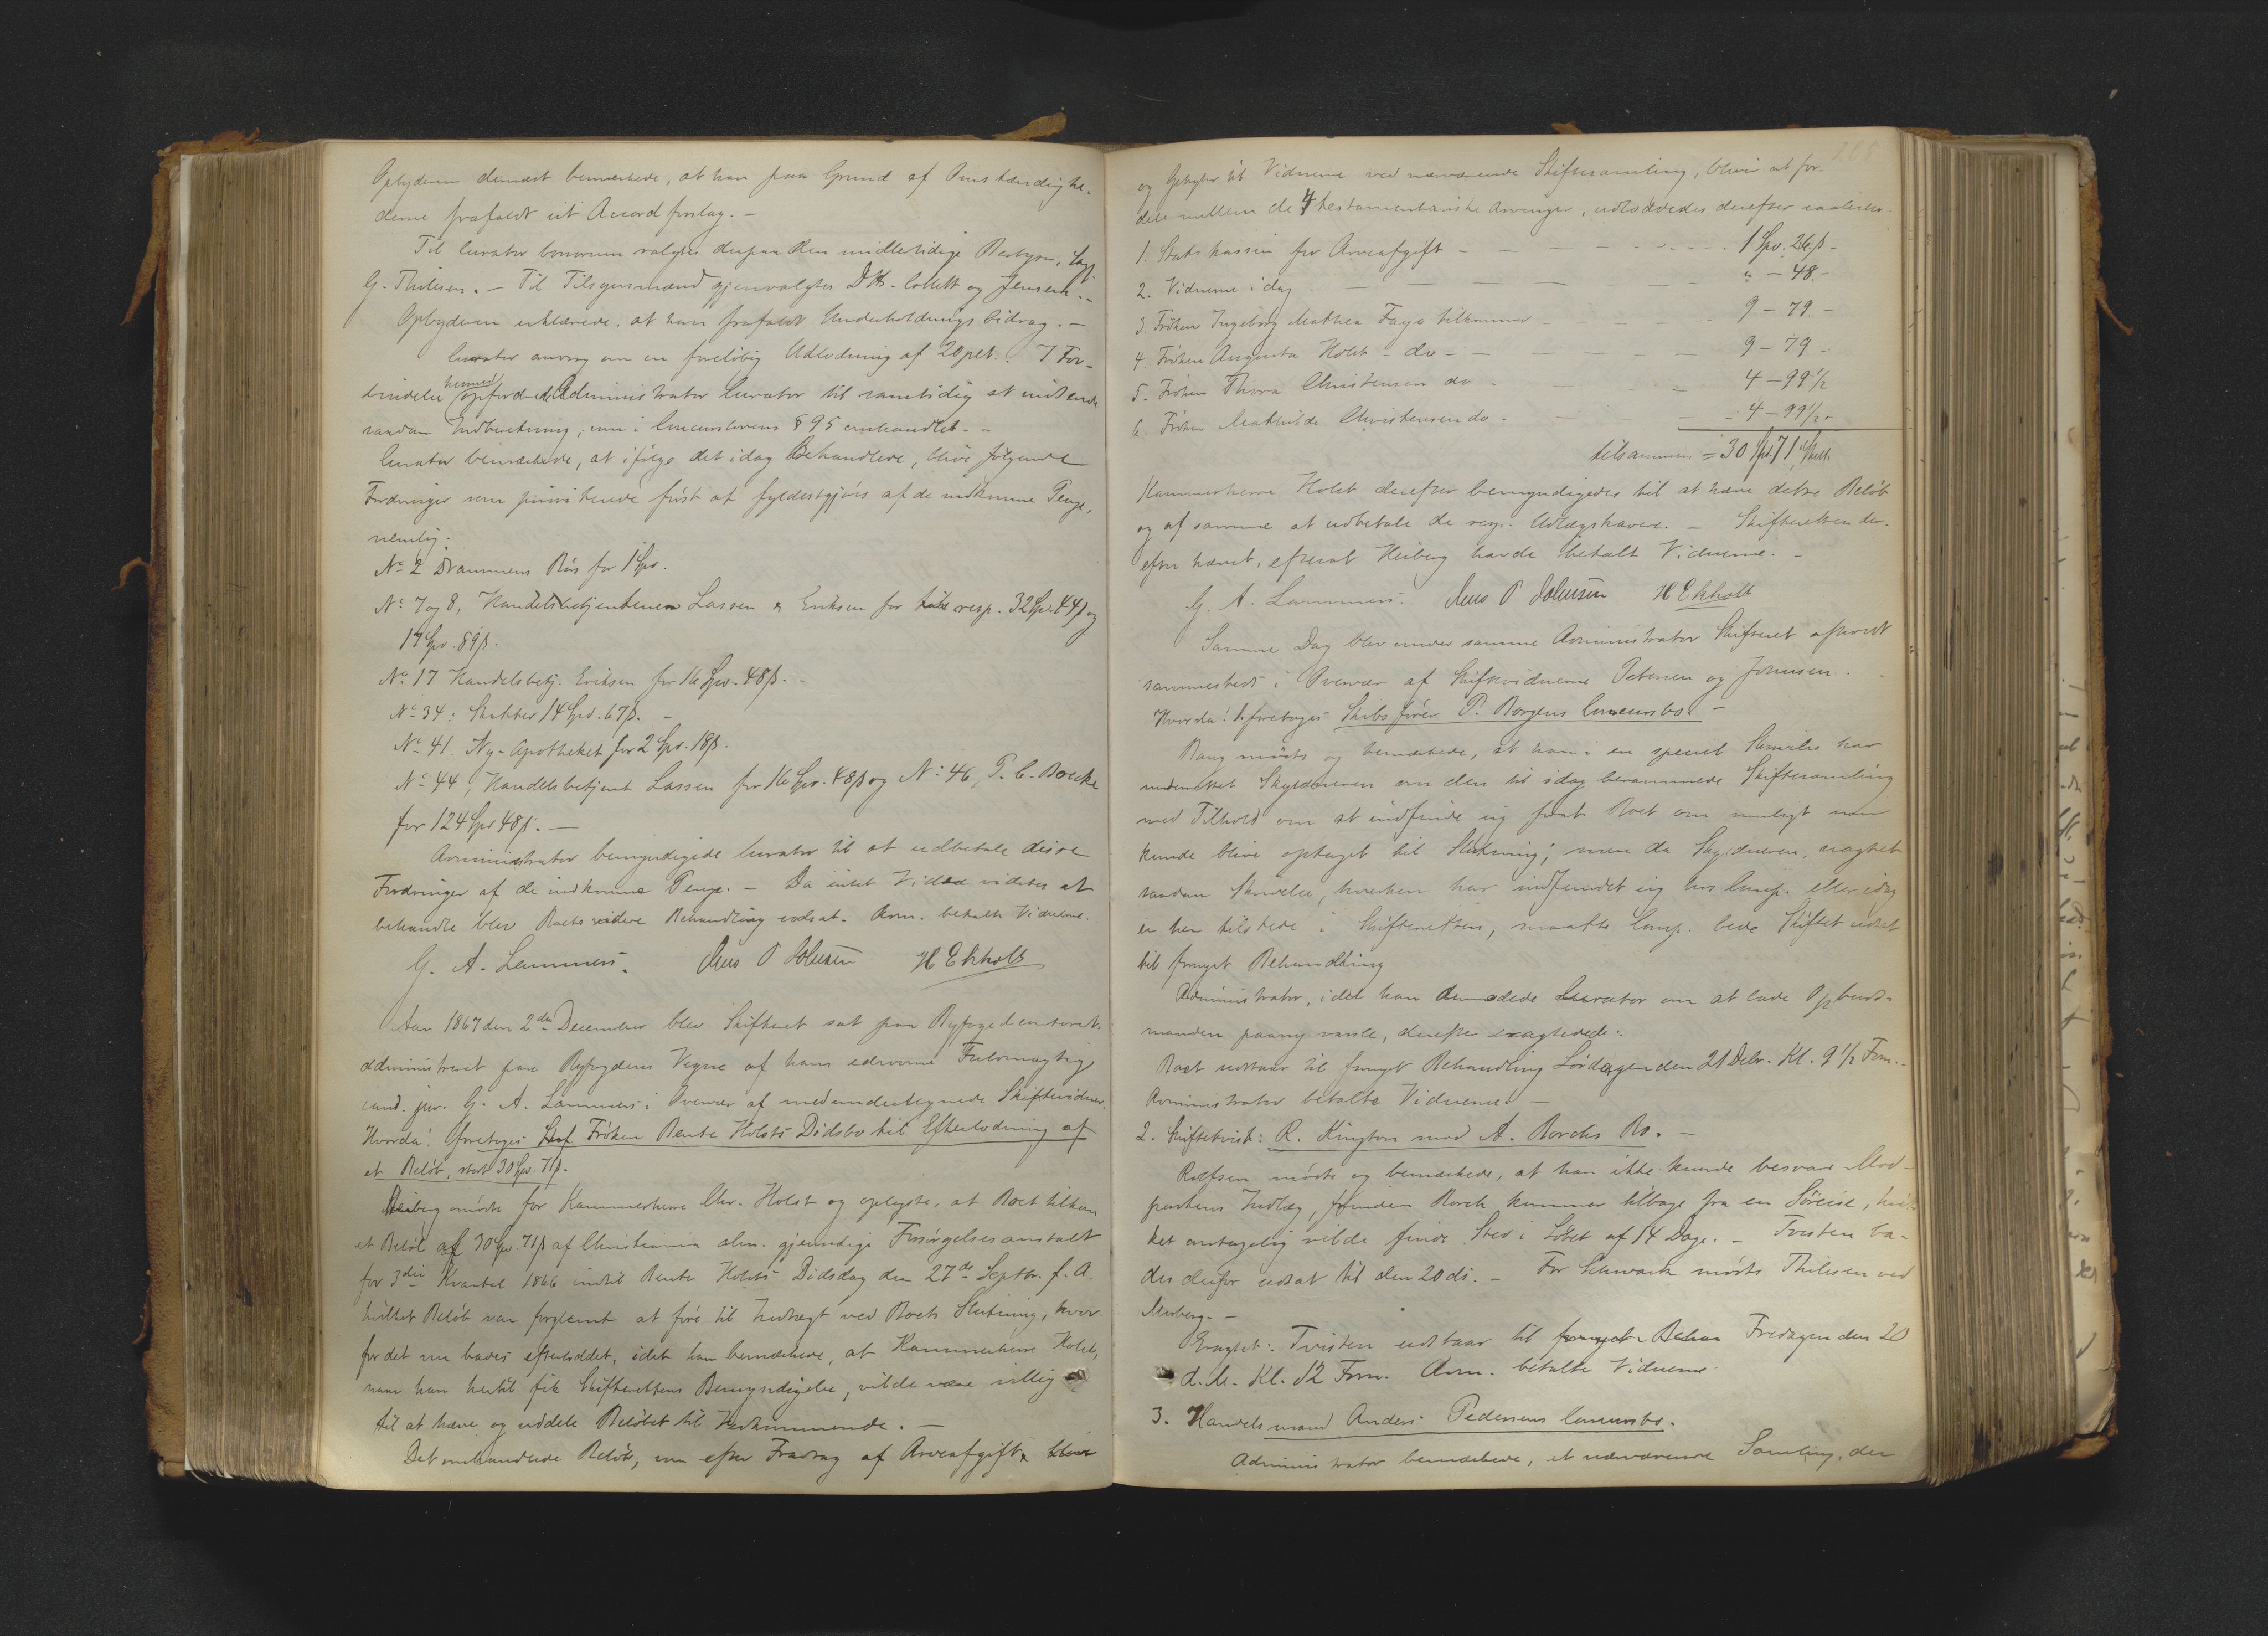 Opbyderen dernæst bemærkede, at han paa Grund af Omstændighe-
derne frafaldt sit Accordforslag. -
Til Curator bonorum valgtes derpaa den midlertidige Bestyrer, Sagf.
G. Thilesen. - Til Tilsynsmænd gjenvalgtes DHr. Collett og Jensen. -
Opbyderen erklærede, at han frafaldt Underholdningsbidrag. -
Curator androg om en foreløbig Udlodning af 20 pCt. I For-
bindelse hermed opfordrede Administrator Curator til samtidig at indsende
saadan Indberetning, som i Concurslovens § 95 omhandlet. -
Curator bemærkede, at ifølge det idag Behandlede, blive følgende
Fordringer som privilegerede først at fyldestgjøres af de indkomne Penge,
nemlig:
No 2 Drammens By for 1 Spd.
No 7 og 8, Handelsbetjentene Lassen & Eriksen for resp. 32 Spd. 44 β og
17 Spd. 89 β.
No 17 Handelsbetj. Eriksen for 16 Spd. 48 β. -
No 34: Skatter 14 Spd. 67 β. -
No 41. Ny-Apotheket for 2 Spd. 18 β.
No 44, Handelsbetjent Lassen for 16 Spd. 48 β og No 46, P. C. Boecke
for 124 Spd 48 β. -
Administrator bemyndigede Curator til at udbetale disse
Fordringer af de indkomne Penge. - Da intet videre at
behandle blev Boets videre Behandling udsat. Adm. betalte Vidnerne.
G. A. Lammers. Jens P Johnsen H Ekholt
Aar 1867 den 2den December blev Skifteret sat paa Byfogedcontoret,
administreret paa Byfogdens Vegne af hans edsvorne Fuldmægtig
cand. jur. G. A. Lammers i Overvær af medundertegnede Skiftevidner.
Hvorda: foretoges Frøken Bente Holsts Dødsbo til Efterlodning af
et Beløb, stort 30 Spd. 71 β.
Heiberg mødte for Kammerherre Chr. Holst og oplyste, at Boet tilkom
et Beløb af 30 Spd. 71 β af Christiania alm. gjensidige Forsørgelsesanstalt
for 3die Kvartal 1866 indtil Bente Holsts Dødsdag den 27de Septbr. f. A.
hvilket Beløb var forglemt at føre til Indtægt ved Boets Slutning, hvor
for det nu bades efterloddet, idet han bemærkede, at Kammerherre Holst,
naar han hertil fik Skifterettens Bemyndigelse, vilde være villig
til at hæve og uddele Beløbet til Vedkommende. -
Det omhandlede Beløb, som efter Fradrag af Arveafgift
og Gebyhr til Vidnerne ved nærværende Skiftesamling, bliver at for-
dele mellem de 4 testamentariske Arvinger, udloddedes derefter saaledes.
1. Statskassen for Arveafgift - 1 Spd. 26 β -
2. Vidnerne i dag - " - 48 -
3. Frøken Ingeborg Mathea Faye tilkommer - 9 - 79 -
4. Frøken Augusta Holst - do - 9 - 79 -
5. Frøken Thora Christensen do - 4 - 99 1/2
6. Frøken Mathilde Christensen do - 4 - 99 1/2 -
tilsammen = 30 Spd. 71 Skill.
Kammerherre Holst derefter bemyndigedes til at hæve dette Beløb
og af samme at udbetale de resp. Udlægshavere. - Skifteretten der-
efter hævet, efterat Heiberg havde betalt Vidnerne. -
G. A. Lammers. Jens P Johnsen H Ekholt
Samme Dag blev under samme Administrator Skifteret afholdt
sammesteds i Overvær af Skiftevidnerne Petersen og Johnsen.
Hvorda: 1. foretoges Skibsfører P. Borgens Concursbo. -
Bang mødte og bemærkede, at han i en speciel Skrivelse har
underrettet Skyldneren om den til idag berammede Skiftesamling
med Tilhold om at indfinde sig forat Boet om muligt nu
kunde blive optaget til Slutning; men da Skyldneren, uagtet
saadan Skrivelse, hverken har indfundet sig hos Comp. eller idag
er her tilstede i Skifteretten, maatte Comp. bede Skiftet udsat
til fornyet Behandling
Administrator, idet han anmodede Curator om at lade Opbuds-
manden paany varsle, derefter eragtede:
Boet udstaar til fornyet Behandling Lørdagen den 21 Debr. Kl. 9 1/2 Fom. -
Administrator betalte Vidnerne. -
2. Skiftetvist: R. Kington mod A. Borchs Bo. -
Rolfsen mødte og bemærkede, at han ikke kunde besvare Mod-
partens Indlæg, førinden Borch kommer tilbage fra en Søreise, hvil-
ket antagelig vilde finde Sted i Løbet af 14 Dage. - Tvisten ba-
des derfor udsat til den 20 ds. - For Schwartz mødte Thilesen ved
Morberg. -
Eragtet: Tvisten udstaar til Fredagen den 20
d. M. Kl. 12 Fom. Adm. betalte Vidnerne
3. Handelsmand Anders Pedersens Concursbo.
Administrator bemærkede, at nærværende Samling, der